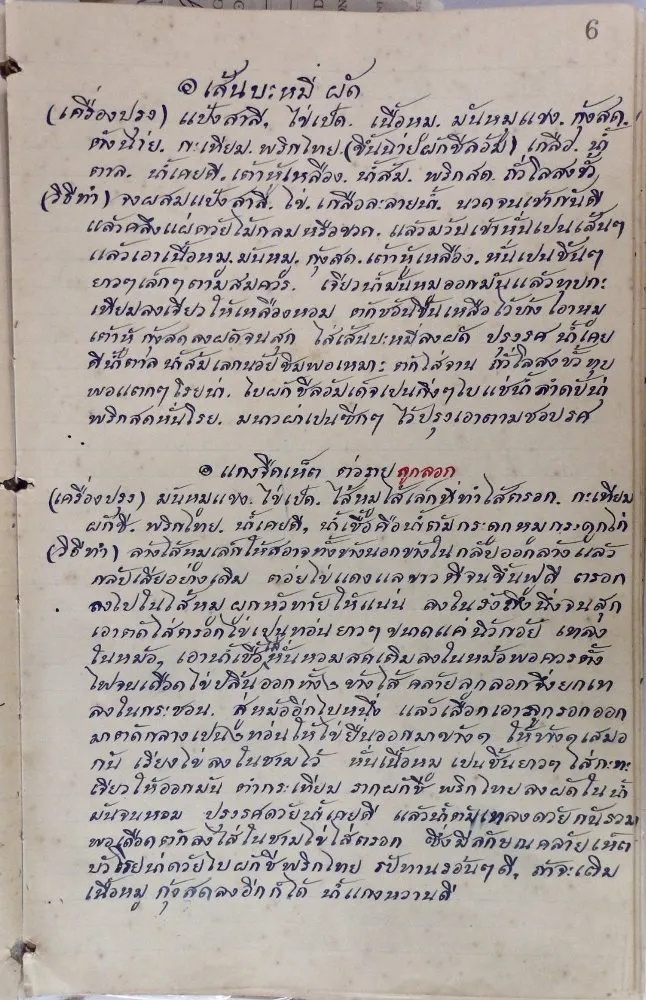 6
๏ เส้นบะหมี่ ผัด
(เครื่องปรุง) แป้งสาลี. ไข่เป็ด. เนื้อหมู. มันหมูแขง. กุ้งสด.
ตังฉ่าย. กะเทียม. พริกไทย. เกลือ. น้ำ
ตาล. น้ำเคยดี. เต้าหู้เหลือง. น้ำส้ม. พริกสด. ถั่วลิสงขั้ว
(วิธีทำ) จงผสมแป้งสาลี. ไข่. เกลือละลายน้ำ. นวดจนเข้ากันดี
แล้วคลึงแผ่ด้วยไม้กลมหรือขวด. แล้วม้วนเข้าหั่นเปนเส้นๆ
แล้วเอาเนื้อหมู. มันหมู. กุ้งสด. เต้าหู้เหลือง. หั่นเปนชิ้นๆ
ยาวๆเล็กๆตามสมควร. เจียวน้ำมันหมูออกมันแล้วทุบกะ
เทียมลงเจียวให้เหลืองหอม ตักช้อนขึ้นเหลือไว้บ้าง เอาหมู
เต้าหู้ กุ้งสดลงผัดจนสุก ใส่เส้นบะหมี่ลงผัด ปรุงรศ น้ำเคย
ดีน้ำตาล น้ำส้มเลกน้อยชิมพอเหมาะ ตักใส่จาน ถั่วลิสงขั้วทุบ
พอแตกๆโรยน่า. ใบผักชี
พริกสดหั่นโรย. มนาวผ่าเปนซีกๆ ไว้ปรุงเอาตามชอบรศ
๏ แกงจืดเห็ด ลูกลอก
(เครื่องปรุง) มันหมูแขง. ไข่เป็ด. ไส้หมูไส้เล็กที่ทำไส้กรอก. กะเทียม
ผักชี. พริกไทย. น้ำเคยดี, น้ำเชื้อคือน้ำต้มกระดูกหมูกระดูกไก่
(วิธีทำ) ล้างไส้หมูเล็กให้สอาจทั้งข้างนอกข้างใน กลับออกล้าง แล้ว
กลับเสียอย่างเดิม ต่อยไข่แดงแลขาว ตีจนขึ้นฟูดี กรอก
ลงไปในไส้หมู ผูกหัวท้ายให้แน่น ลงในรังถึงนึ่งจนสุก
เอาตัดไส้กรอกไข่เปนท่อนยาวๆขนาดแค่นิ้วก้อย เทลง
ในหม้อ, เอาน้ำเชื้อ เติมลงในหม้อพอควรตั้ง
ไฟจนเดือดไข่ปลิ้นออกทั้ง ๒ ข้างไส้ คล้ายลูกลอกจึงยกเท
ลงในกระชอน. สู่หม้ออีกใบหนึ่ง แล้วเลือกเอาลูกรอกออก
มาตัดกลางเปน ๒ ท่อนให้ไข่ยื่นออกมาข้าง ๑ ให้ข้าง ๑ เสมอ
กัน เรียงไข่ลงในชามไว้ หั่นเนื้อหมู เปนชิ้นยาวๆ ใส่กะทะ
เจียวให้ออกมัน ตำกระเทียม รากผักชี พริกไทย ลงผัดในน้ำ
มันจนหอม ปรุงรศด้วยน้ำเคยดี แล้วน้ำต้มเทลงด้วยกันรวม
พอเดือดตักลงใส่ในชามไข่ไส้กรอก ซึ่งมีลักษณคล้ายเห็ด
บัวโรยน่าด้วยใบผักชีพริกไทย รับทานร้อนๆดี, ถ้าจะเติม
เนื้อหมู กุ้งสดลงอีกก็ได้ น้ำแกงหวานดี